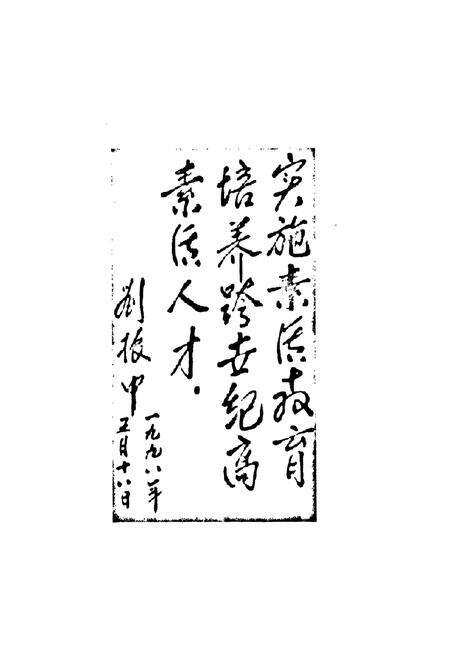 实施素质教育
培养跨世纪高
素质人才.
刘振中
一九九八年
五月十八日